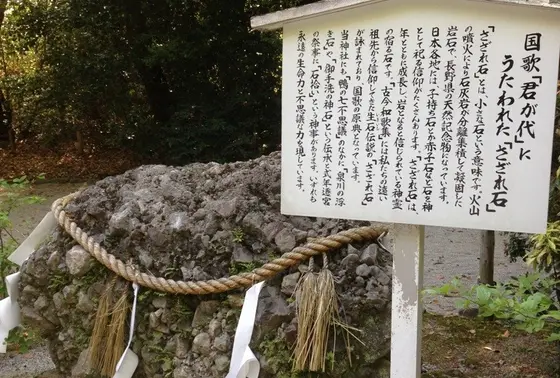 国歌「君が代」に
うたわれた、「さざれ石」
「さざれ石」とは、小さな石という意味です。火山
の噴火により石灰岩から分離集積して凝固した
岩石で、長野県の天然記念物になっています。
日本各地には、子持ち石とか赤子石など石を神
として祀る信仰がたくさんあります。「さざれ石」は、
年とともに成長し、岩となると信じられている神霊
の宿る石です。『古今和歌集』には私たちの遠い
祖先から信仰してきた生石伝説の「さざれ石」
が詠まれており、国歌の原典となっています。
当神社にも、「鴨の七不思議」のなかに、「泉川の浮
き石」や「御手洗の神石」という伝承と式年遷宮
の祭事に「石拾い」という神事があります。いずれも
永遠の生命力と不思議な力を遺しています。